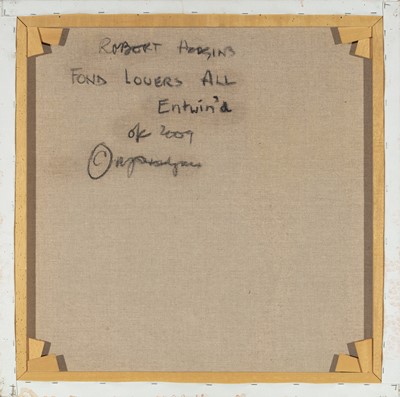 ROBERT HODGINS
FOND LOVERS ALL
Entwin'd
o/c 2009
©